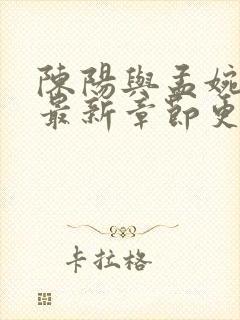 陳陽與孟婉
最新章節更
卡拉格